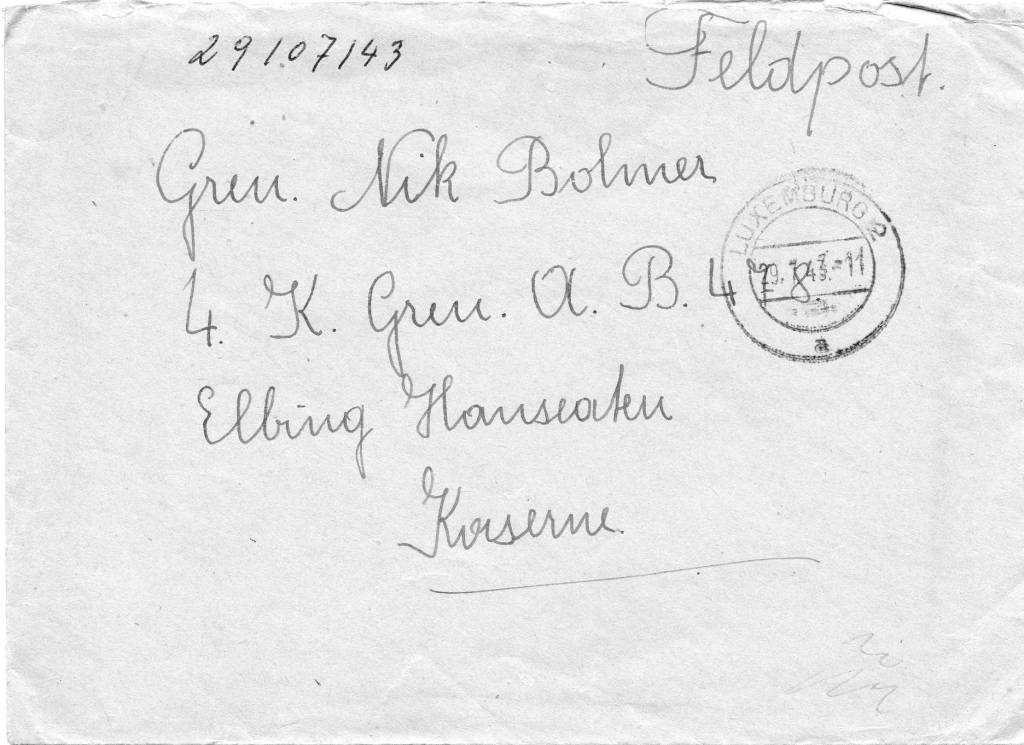 29/07/43
Feldpost.
Gren. Nik Bohmer
LUXEMBURG 2
29.7.43.-11
a
4. K. Gren. A. B. 4
Elbing Hanseaten
Kaserne.